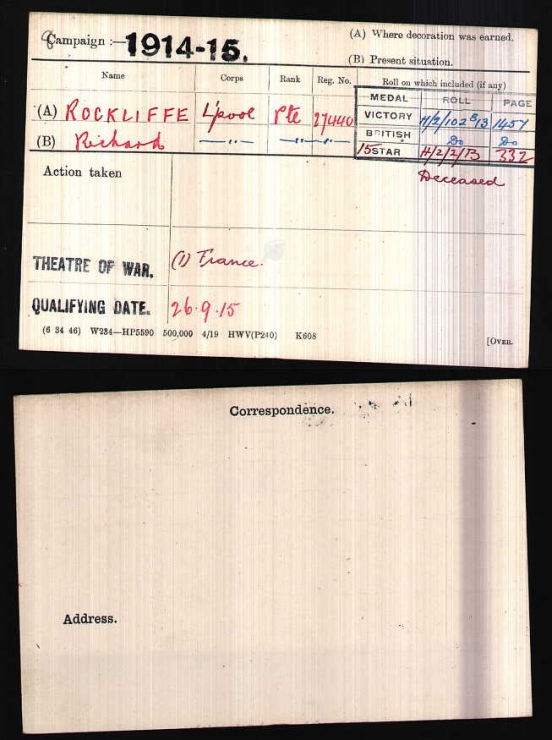 Campaign :— 1914-15.
(A) Where decoration was earned.
(B) Present situation.
Name Corps Rank Reg. No. Roll on which included (if any)
MEDAL ROLL PAGE
(A) ROCKLIFFE L'pool Pte 27440
VICTORY H/2/102B13 1457
(B) Richard —"— —"—
BRITISH Do Do
15 STAR H/2/2/B 332
Action taken
Deceased
THEATRE OF WAR. (1) France.
QUALIFYING DATE. 26.9.15
(6 34 46) W234—HP5590 500,000 4/19 HWV(P240) K608
[OVER.
Correspondence.
Address.